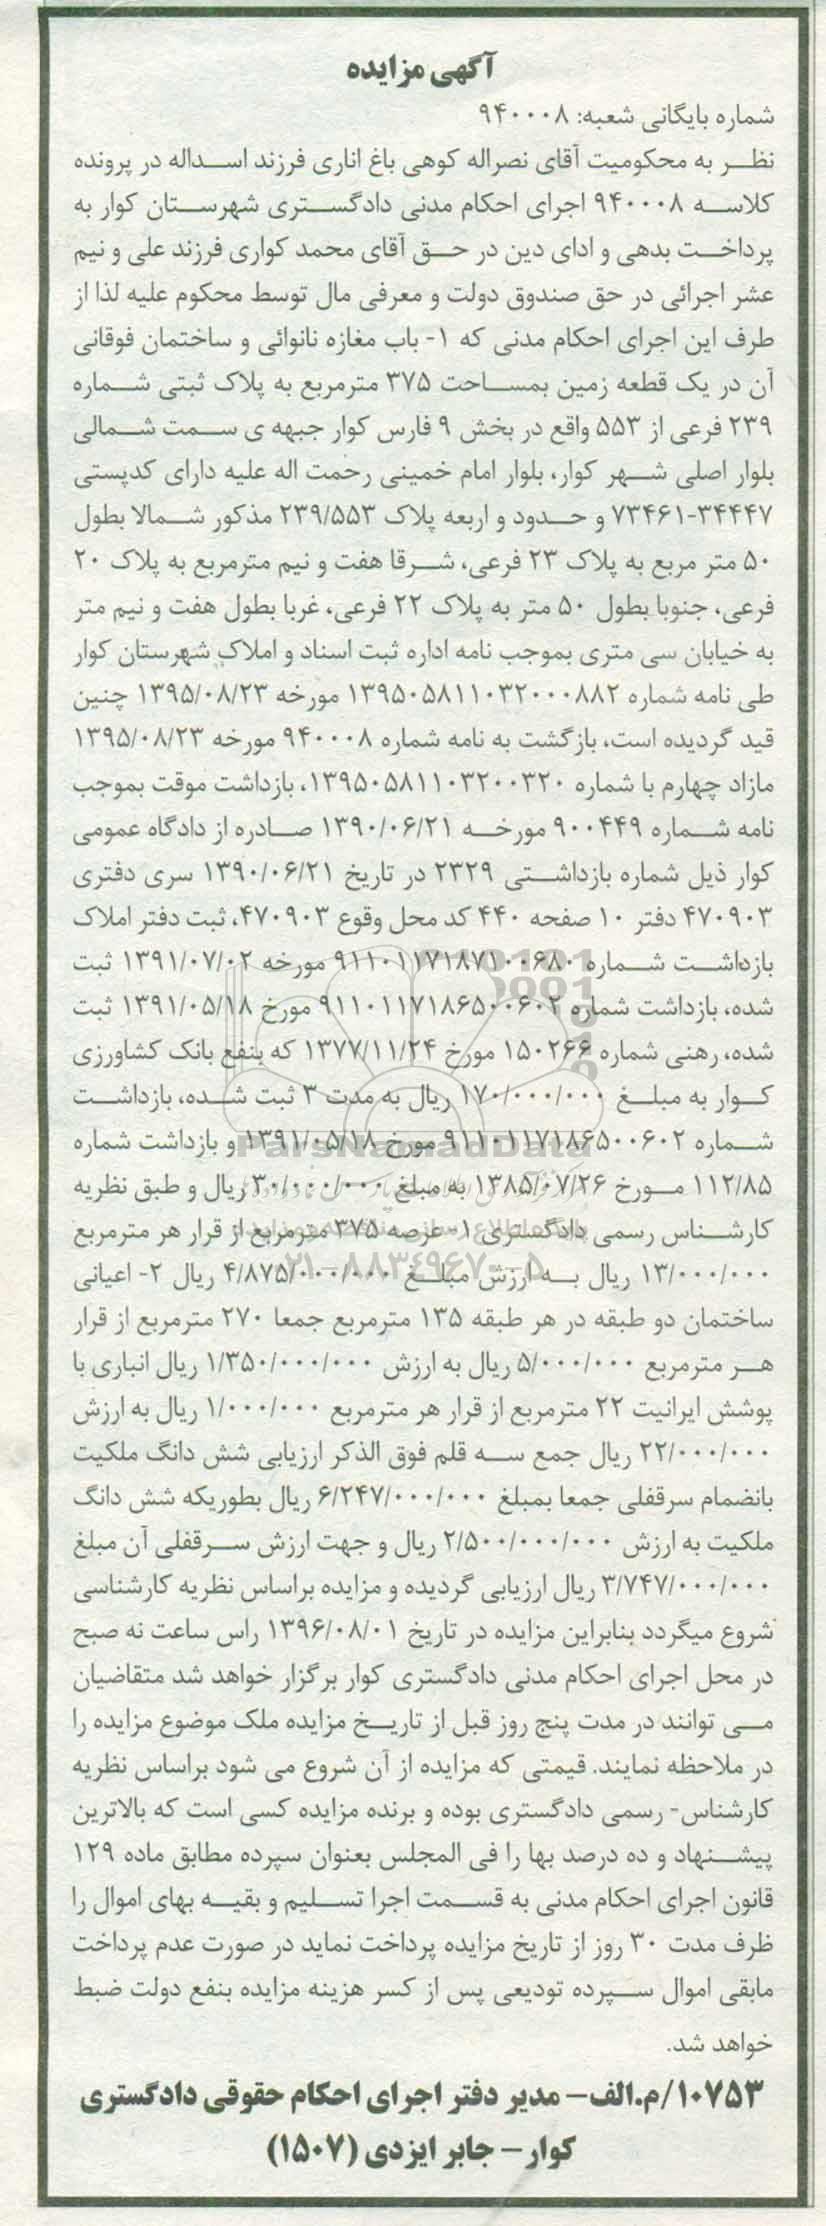 آگهی مزایده
شماره بایگانی شعبه: ۹۴۰۰۰۸
نظر به محکومیت آقای نصراله کوهی باغ اناری فرزند اسداله در پرونده
کلاسه ۹۴۰۰۰۸ اجرای احکام مدنی دادگستری شهرستان کوار به
پرداخت بدهی و ادای دین در حق آقای محمد کواری فرزند علی و نیم
عشر اجرائی در حق صندوق دولت و معرفی مال توسط محکوم علیه لذا از
طرف این اجرای احکام مدنی که ۱- باب مغازه نانوائی و ساختمان فوقانی
آن در یک قطعه زمین بمساحت ۳۷۵ مترمربع به پلاک ثبتی شماره
۲۳۹ فرعی از ۵۵۳ واقع در بخش ۹ فارس کوار جبهه ی سمت شمالی
بلوار اصلی شهر کوار، بلوار امام خمینی رحمت اله علیه دارای کدپستی
۷۳۴۶۱-۳۴۴۴۷ و حدود و اربعه پلاک ۲۳۹/۵۵۳ مذکور شمالا بطول
۵۰ متر مربع به پلاک ۲۳ فرعی، شرقا هفت و نیم مترمربع به پلاک ۲۰
فرعی، جنوبا بطول ۵۰ متر به پلاک ۲۲ فرعی، غربا بطول هفت و نیم متر
به خیابان سی متری بموجب نامه اداره ثبت اسناد و املاک شهرستان کوار
طی نامه شماره ۱۳۹۵۰۵۸۱۱۰۳۲۰۰۰۸۸۲ مورخه ۱۳۹۵/۰۸/۲۳ چنین
قید گردیده است، بازگشت به نامه شماره ۹۴۰۰۰۸ مورخه ۱۳۹۵/۰۸/۲۳
مازاد چهارم با شماره ۱۳۹۵۰۵۸۱۱۰۳۲۰۰۳۲۰، بازداشت موقت بموجب
نامه شماره ۹۰۰۴۴۹ مورخه ۱۳۹۰/۰۶/۲۱ صادره از دادگاه عمومی
کوار ذیل شماره بازداشتی ۲۳۲۹ در تاریخ ۱۳۹۰/۰۶/۲۱ سری دفتری
۴۷۰۹۰۳ دفتر ۱۰ صفحه ۴۴۰ کد محل وقوع ۴۷۰۹۰۳، ثبت دفتر املاک
بازداشت شماره ۹۱۱۰۱۱۷۱۸۷۱۰۰۶۸۰ مورخه ۱۳۹۱/۰۷/۰۲ ثبت
شده، بازداشت شماره ۹۱۱۰۱۱۷۱۸۶۵۰۰۶۰۲ مورخ ۱۳۹۱/۰۵/۱۸ ثبت
شده، رهنی شماره ۱۵۰۲۶۶ مورخ ۱۳۷۷/۱۱/۲۴ که بنفع بانک کشاورزی
کوار به مبلغ ۱۷۰/۰۰۰/۰۰۰ ریال به مدت ۳ ثبت شده، بازداشت
شماره ۹۱۱۰۱۱۷۱۸۶۵۰۰۶۰۲ مورخ ۱۳۹۱/۰۵/۱۸ و بازداشت شماره
۱۱۲/۸۵ مورخ ۱۳۸۵/۰۷/۲۶ به مبلغ ۳۰/۰۰۰/۰۰۰ ریال و طبق نظریه
کارشناس رسمی دادگستری ۱- عرصه ۳۷۵ مترمربع از قرار هر مترمربع
۱۳/۰۰۰/۰۰۰ ریال به ارزش مبلغ ۴/۸۷۵/۰۰۰/۰۰۰ ریال ۲- اعیانی
ساختمان دو طبقه در هر طبقه ۱۳۵ مترمربع جمعا ۲۷۰ مترمربع از قرار
هر مترمربع ۵/۰۰۰/۰۰۰ ریال به ارزش ۱/۳۵۰/۰۰۰/۰۰۰ ریال انباری با
پوشش ایرانیت ۲۲ مترمربع از قرار هر مترمربع ۱/۰۰۰/۰۰۰ ریال به ارزش
۲۲/۰۰۰/۰۰۰ ریال جمع سه قلم فوق الذکر ارزیابی شش دانگ ملکیت
بانضمام سرقفلی جمعا بمبلغ ۶/۲۴۷/۰۰۰/۰۰۰ ریال بطوریکه شش دانگ
ملکیت به ارزش ۲/۵۰۰/۰۰۰/۰۰۰ ریال و جهت ارزش سرقفلی آن مبلغ
۳/۷۴۷/۰۰۰/۰۰۰ ریال ارزیابی گردیده و مزایده براساس نظریه کارشناسی
شروع میگردد بنابراین مزایده در تاریخ ۱۳۹۶/۰۸/۰۱ راس ساعت نه صبح
در محل اجرای احکام مدنی دادگستری کوار برگزار خواهد شد متقاضیان
می توانند در مدت پنج روز قبل از تاریخ مزایده ملک موضوع مزایده را
در ملاحظه نمایند. قیمتی که مزایده از آن شروع می شود براساس نظریه
کارشناس- رسمی دادگستری بوده و برنده مزایده کسی است که بالاترین
پیشنهاد و ده درصد بها را فی المجلس بعنوان سپرده مطابق ماده ۱۲۹
قانون اجرای احکام مدنی به قسمت اجرا تسلیم و بقیه بهای اموال را
ظرف مدت ۳۰ روز از تاریخ مزایده پرداخت نماید در صورت عدم پرداخت
مابقی اموال سپرده تودیعی پس از کسر هزینه مزایده بنفع دولت ضبط
خواهد شد.
۱۰۷۵۳/م.الف- مدیر دفتر اجرای احکام حقوقی دادگستری
کوار - جابر ایزدی (۱۵۰۷)
ParsNamadData
۰۲۱-۸۸۳۴۹۶۷۰-۵